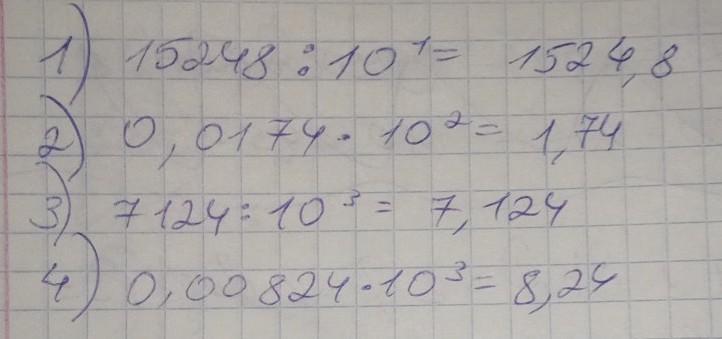 1) 15248 : 10¹ = 1524,8
2) 0,0174 · 10² = 1,74
3) 7124 : 10³ = 7,124
4) 0,00824 · 10³ = 8,24